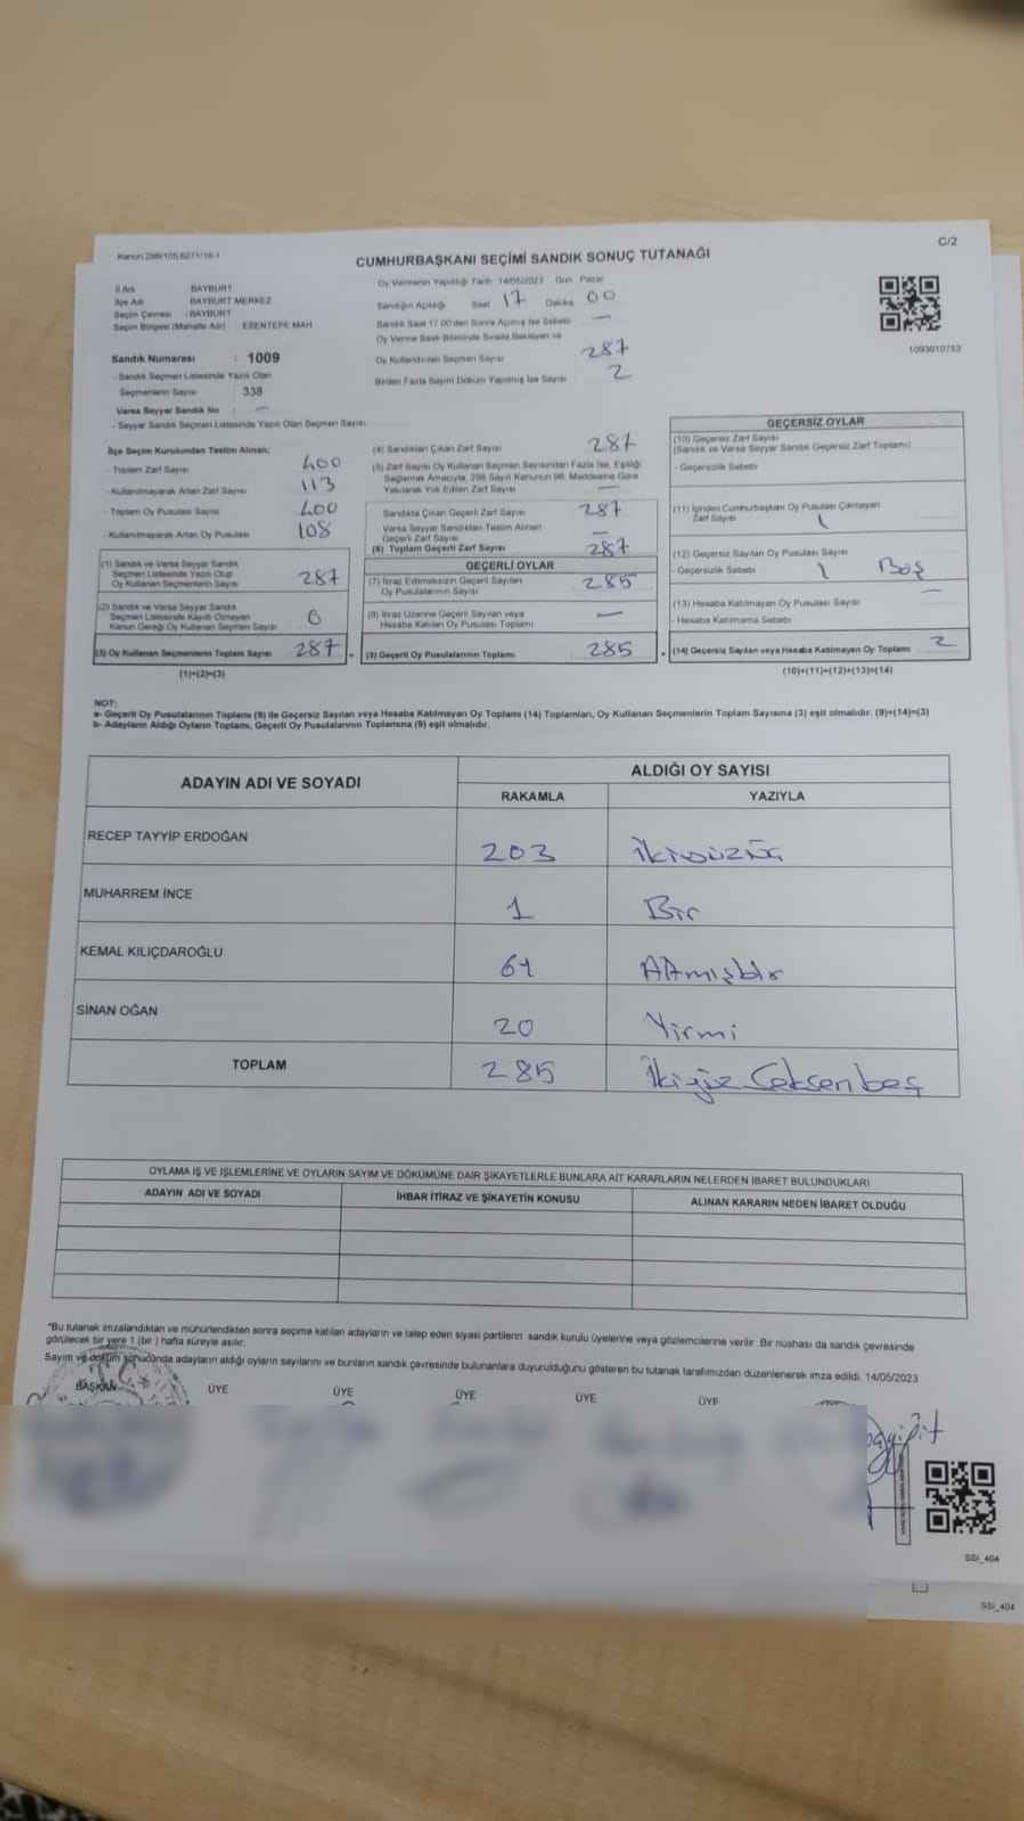 C/2
CUMHURBAŞKANI SEÇİMİ SANDIK SONUÇ TUTANAĞI
İl Adı BAYBURT
İlçe Adı BAYBURT MERKEZ
Seçim Çevresi : BAYBURT
Seçim Bölgesi (Mahalle Adı) ESENTEPE MAH
Sandık Numarası : 1009
Sandık Seçmen Listesinde Yazılı Olan
Seçmenlerin Sayısı 338
Varsa Seyyar Sandık No : —
- Seyyar Sandık Seçmen Listesinde Yazılı Olan Seçmen Sayısı
Oy Vermenin Yapıldığı Tarih 14/05/2023 Gün Pazar
Sandığın Açıldığı Saat 17 Dakika 00
Sandık Saat 17.00'den Sonra Açılmış İse Sebebi —
Oy Verme Saati Bitiminde Sırada Bekleyen ve
Oy Kullandırılan Seçmen Sayısı 287
Birden Fazla Sayım Döküm Yapılmış İse Sayısı 2
1093010753
İlçe Seçim Kurulundan Teslim Alınan;
- Toplam Zarf Sayısı 400
- Kullanılmayarak Artan Zarf Sayısı 113
- Toplam Oy Pusulası Sayısı 400
- Kullanılmayarak Artan Oy Pusulası 108
(1) Sandık ve Varsa Seyyar Sandık
Seçmen Listesinde Yazılı Olup
Oy Kullanan Seçmenlerin Sayısı 287
(2) Sandık ve Varsa Seyyar Sandık
Seçmen Listesinde Kayıtlı Olmayan
Kanun Gereği Oy Kullanan Seçmen Sayısı 0
(3) Oy Kullanan Seçmenlerin Toplam Sayısı 287
(1)+(2)=(3)
(4) Sandıktan Çıkan Zarf Sayısı 287
(5) Zarf Sayısı Oy Kullanan Seçmen Sayısından Fazla İse, Eşitliği
Sağlamak Amacıyla, 298 Sayılı Kanunun 98. Maddesine Göre
Yakılarak Yok Edilen Zarf Sayısı —
Sandıkta Çıkan Geçerli Zarf Sayısı 287
Varsa Seyyar Sandıktan Teslim Alınan
Geçerli Zarf Sayısı —
(6) Toplam Geçerli Zarf Sayısı 287
GEÇERLİ OYLAR
(7) İtiraz Edilmeksizin Geçerli Sayılan
Oy Pusulalarının Sayısı 285
(8) İtiraz Üzerine Geçerli Sayılan veya
Hesaba Katılan Oy Pusulası Toplamı —
(9) Geçerli Oy Pusulalarının Toplamı 285
GEÇERSİZ OYLAR
(10) Geçersiz Zarf Sayısı
(Sandık ve Varsa Seyyar Sandık Geçersiz Zarf Toplamı)
- Geçersizlik Sebebi
(11) İçinden Cumhurbaşkanı Oy Pusulası Çıkmayan
Zarf Sayısı 1
(12) Geçersiz Sayılan Oy Pusulası Sayısı
- Geçersizlik Sebebi 1 Boş
(13) Hesaba Katılmayan Oy Pusulası Sayısı —
- Hesaba Katılmama Sebebi
(14) Geçersiz Sayılan veya Hesaba Katılmayan Oy Toplamı 2
(10)+(11)+(12)+(13)=(14)
NOT:
a- Geçerli Oy Pusulalarının Toplamı (9) ile Geçersiz Sayılan veya Hesaba Katılmayan Oy Toplamı (14) Toplamları, Oy Kullanan Seçmenlerin Toplam Sayısına (3) eşit olmalıdır. (9)+(14)=(3)
b- Adayların Aldığı Oyların Toplamı, Geçerli Oy Pusulalarının Toplamına (9) eşit olmalıdır.
ADAYIN ADI VE SOYADI ALDIĞI OY SAYISI
RAKAMLA YAZIYLA
RECEP TAYYİP ERDOĞAN 203 İkiyüzüç
MUHARREM İNCE 1 Bir
KEMAL KILIÇDAROĞLU 61 Altmışbir
SİNAN OĞAN 20 Yirmi
TOPLAM 285 İkiyüz Seksenbeş
OYLAMA İŞ VE İŞLEMLERİNE VE OYLARIN SAYIM VE DÖKÜMÜNE DAİR ŞİKAYETLERLE BUNLARA AİT KARARLARIN NELERDEN İBARET BULUNDUKLARI
ADAYIN ADI VE SOYADI İHBAR İTİRAZ VE ŞİKAYETİN KONUSU ALINAN KARARIN NEDEN İBARET OLDUĞU
"Bu tutanak imzalandıktan ve mühürlendikten sonra seçime katılan adayların ve talep eden siyasi partilerin sandık kurulu üyelerine veya gözlemcilerine verilir. Bir nüshası da sandık çevresinde
görülecek bir yere 1 (bir) hafta süreyle asılır.
Sayım ve döküm sonucunda adayların aldığı oyların sayılarını ve bunların sandık çevresinde bulunanlara duyurulduğunu gösteren bu tutanak tarafımızdan düzenlenerek imza edildi. 14/05/2023
BAŞKAN ÜYE ÜYE ÜYE ÜYE ÜYE
SSI_404
SSI_404